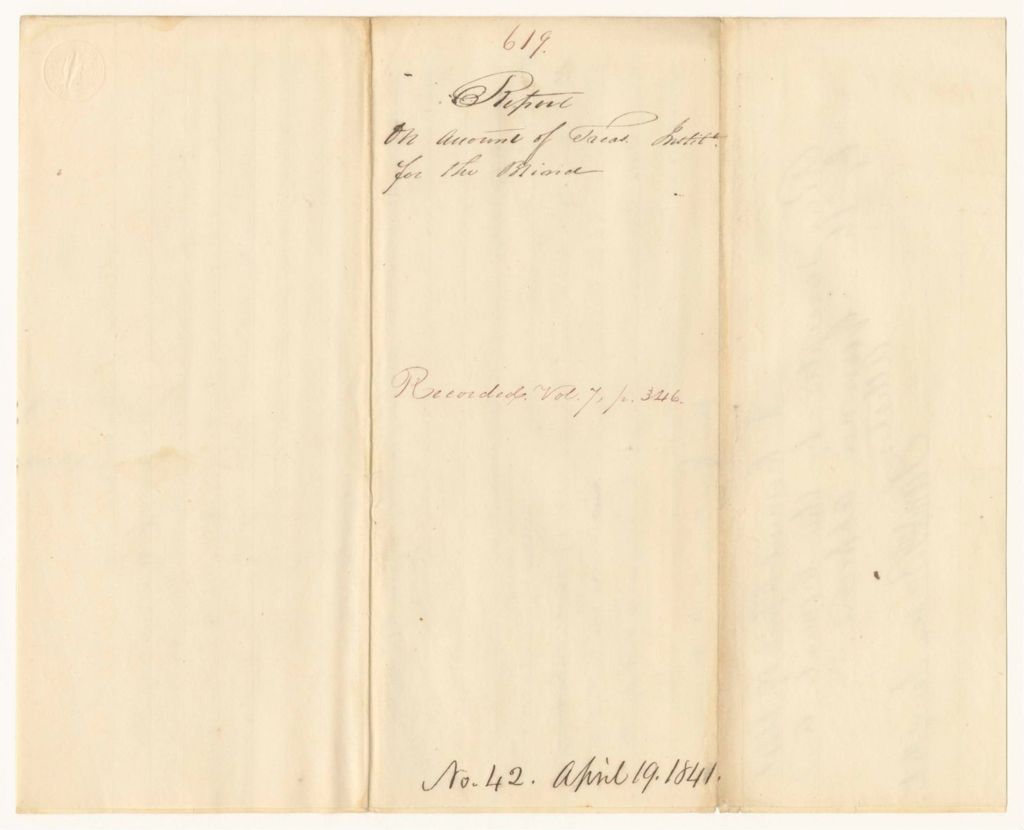 619.
Report
On Account of Treas. Instit.
for the Blind
Recorded. Vol. 7, p. 346.
No. 42. April 19. 1841.